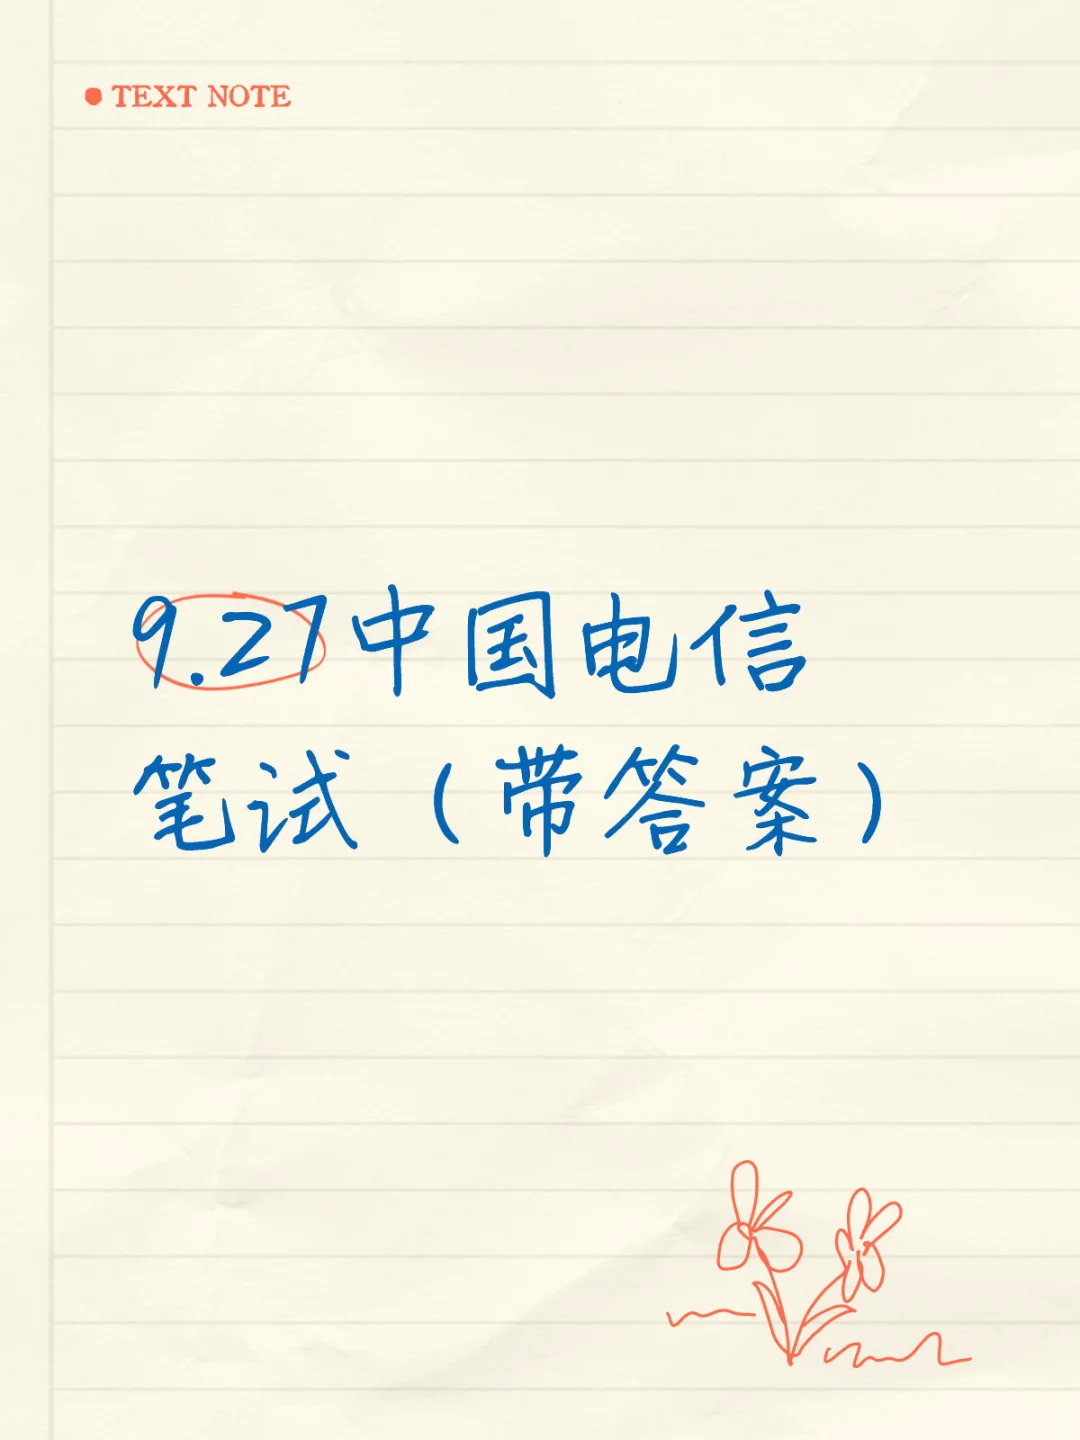 TEXT NOTE
9.27中国电信
笔试（带答案）